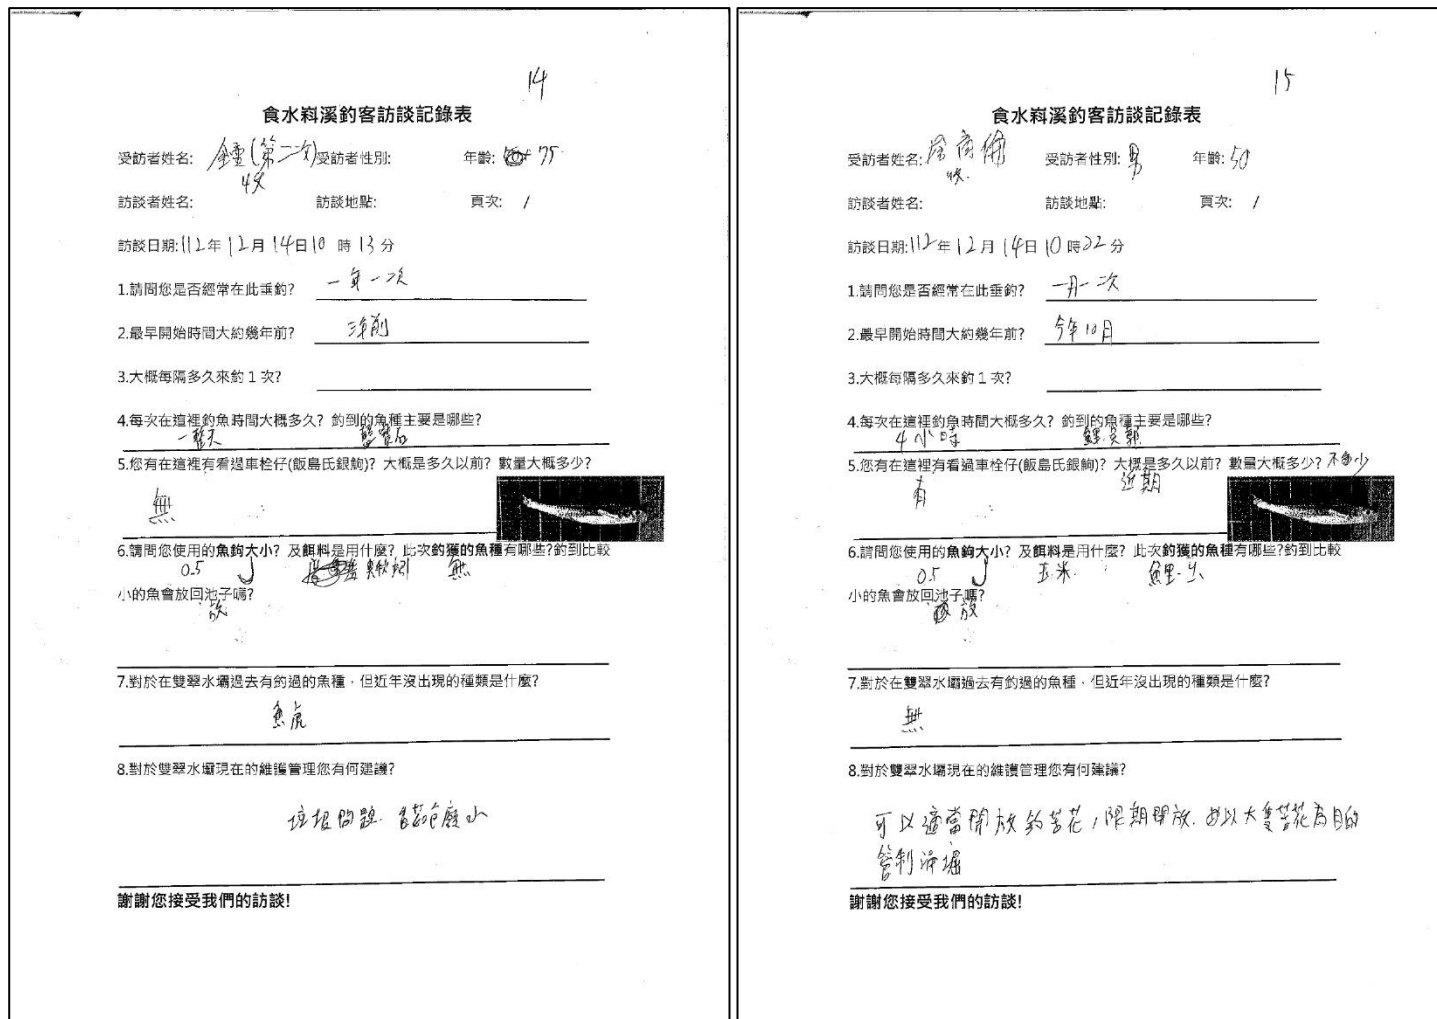 14
食水嵙溪釣客訪談記錄表
受訪者姓名: (第二次) 受訪者性別: 年齡: 75
訪談者姓名: 訪談地點: 頁次: 1
訪談日期:112年12月14日10時13分
1.請問您是否經常在此垂釣? 一年一次
2.最早開始時間大約幾年前?
3.大概每隔多久來釣1次?
4.每次在這裡釣魚時間大概多久? 釣到的魚種主要是哪些?
一整天 藍寶石
5.您有在這裡有看過車栓仔(飯島氏銀鮈)? 大概是多久以前? 數量大概多少?
無
6.請問您使用的魚鉤大小? 及餌料是用什麼? 此次釣獲的魚種有哪些?釣到比較
0.5 無
小的魚會放回池子嗎?
放
7.對於在雙翠水壩過去有釣過的魚種，但近年沒出現的種類是什麼?
魚虎
8.對於雙翠水壩現在的維護管理您有何建議?
垃圾問題.
謝謝您接受我們的訪談!
15
食水嵙溪釣客訪談記錄表
受訪者姓名: 受訪者性別: 男 年齡: 50
訪談者姓名: 訪談地點: 頁次: 1
訪談日期:112年12月14日10時22分
1.請問您是否經常在此垂釣? 一月一次
2.最早開始時間大約幾年前? 今年10月
3.大概每隔多久來釣1次?
4.每次在這裡釣魚時間大概多久? 釣到的魚種主要是哪些?
4小時 鯉.吳郭
5.您有在這裡有看過車栓仔(飯島氏銀鮈)? 大概是多久以前? 數量大概多少? 不會少
有 近期
6.請問您使用的魚鉤大小? 及餌料是用什麼? 此次釣獲的魚種有哪些?釣到比較
0.5 玉米.
小的魚會放回池子嗎?
放
7.對於在雙翠水壩過去有釣過的魚種，但近年沒出現的種類是什麼?
無
8.對於雙翠水壩現在的維護管理您有何建議?
可以適當開放釣苦花，限期開放. 以大隻苦花為目的
管制
謝謝您接受我們的訪談!